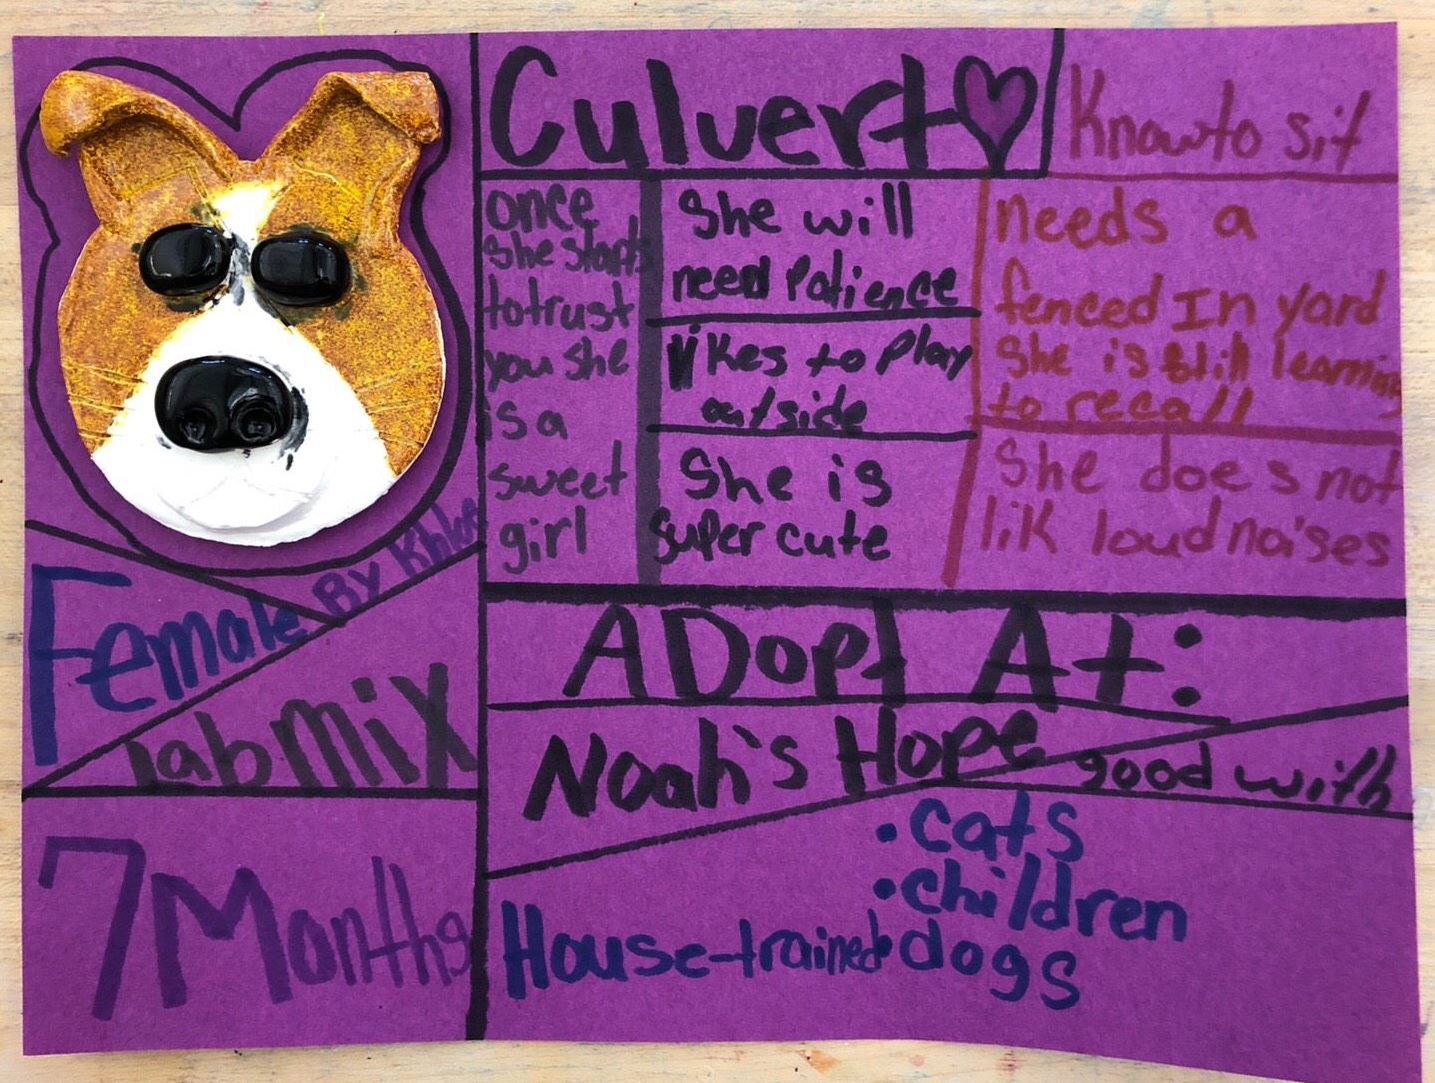 Culvert
Know to sit
once
she starts
to trust
you she
is a
sweet
girl
She will
need Patience
likes to Play
outside
She is
super cute
needs a
fenced In yard
She is still learning
to recall
She does not
lik loud noises
By Khloe
Female
lab mix
7 Months
ADopt At:
Noah's Hope
good with
• cats
• children
• dogs
House-trained